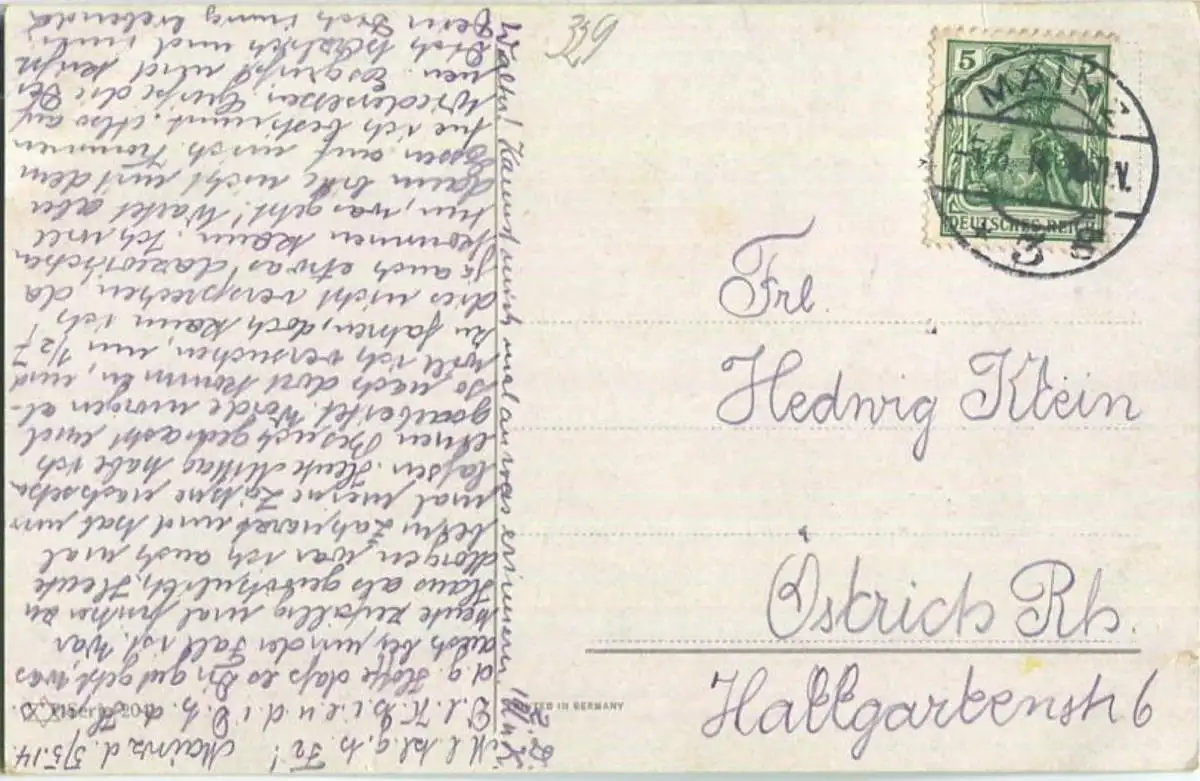 339
5
MAINZ
DEUTSCHES REICH
Frl.
Hedwig Klein
Östrich Rh.
Hallgartenstr 6
PRINTED IN GERMANY
Mainz d. 5/5.14.
M. l. kl. g. h. Fr!
D. l. K. h. i. e. u. d. i. l. h. d.
d. g. Hoffe daſs es Dir gut geht, was
auch bei mir der Fall ist. War
heute zufällig mal früher zu
Haus als gewöhnlich. Heute
Morgen, war ich auch mal
beim Zahnarzt und hab mir
mal meine Zähne nachsehn
laſsen. Heute Mittag habe ich
einen Besuch gemacht und
gearbeitet. Werde morgen al-
so nach dort kommen, und
will ich versuchen, um 1/2 7
zu fahren, doch kann ich
dies nicht versprechen, da
ja auch etwas dazwischen
kommen kann. Ich will
tun, was geht! Wartet aber
dann bitte nicht mit dem
Essen auf mich. Kommen
tue ich bestimmt. Also auf
Wiedersehen. Grüße die Dei
nen. Es grüßt und küsst
Dich herzlich und innig
Dein Dich innig liebender
Walter! Kannst mich mal an was erinnern!